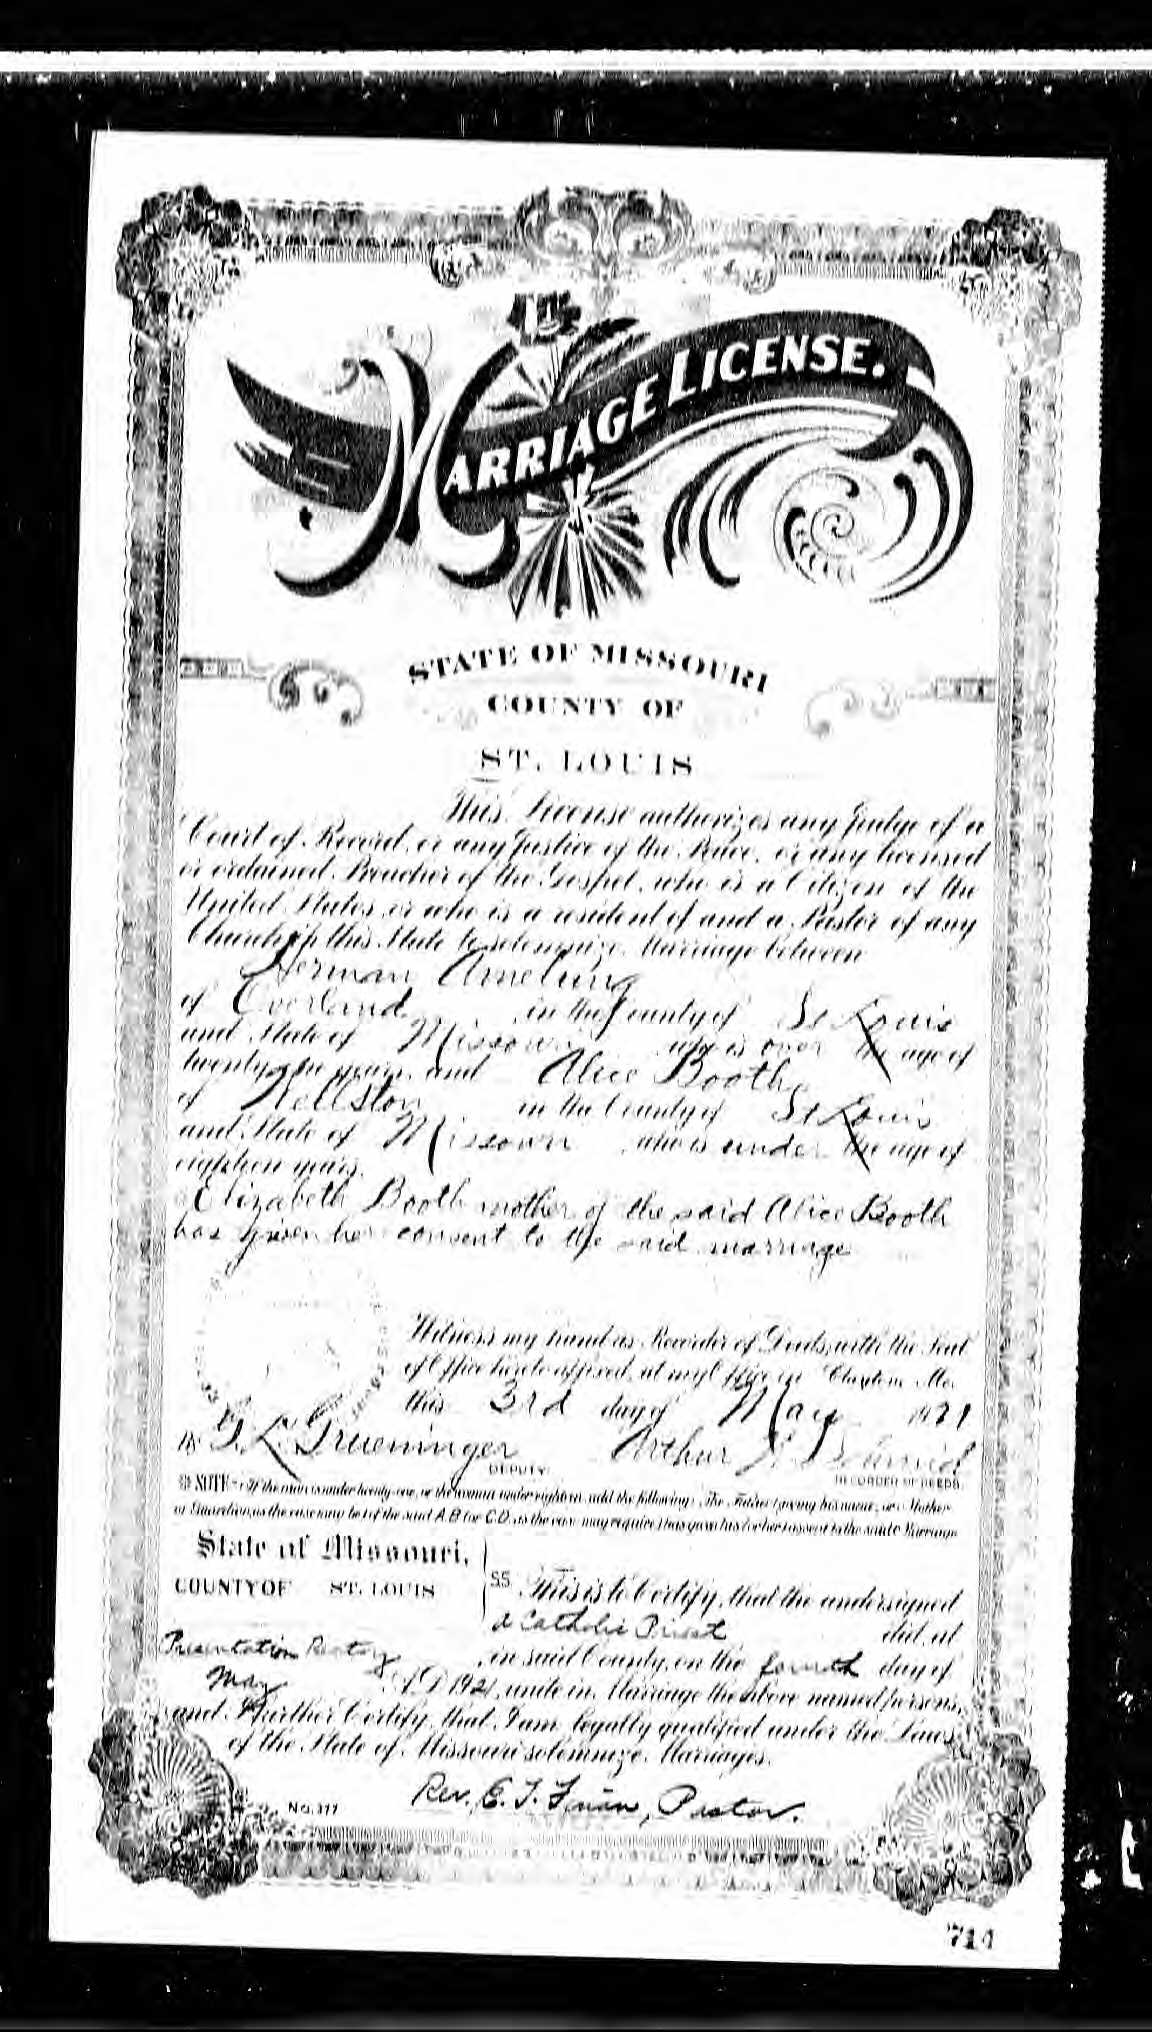 MARRIAGE LICENSE.
STATE OF MISSOURI
COUNTY OF
ST. LOUIS
This License authorizes any Judge of a
Court of Record, or any Justice of the Peace, or any licensed
or ordained Preacher of the Gospel, who is a Citizen of the
United States, or who is a resident of and a Pastor of any
Church in this State to solemnize Marriage between
Herman Amelung
of Overland in the County of St Louis
and State of Missouri who is over the age of
twenty-one years and Alice Booth
of Wellston in the County of St Louis
and State of Missouri who is under the age of
eighteen years.
Elizabeth Booth mother of the said Alice Booth
has given her consent to the said marriage
Witness my hand as Recorder of Deeds, with the Seal
of Office hereto affixed, at my Office in Clayton Mo.
this 3rd day of May 1921
By G. L. Grueninger Arthur Schmid
DEPUTY RECORDER OF DEEDS
NOTE - If the man is under twenty-one, or the woman under eighteen, add the following: The Father (giving his name, or Mother
or Guardian, as the case may be) of the said A.B. (or C.D. as the case may require) has given his (or her) consent to the said Marriage
State of Missouri,
COUNTY OF ST. LOUIS
SS. This is to Certify, that the undersigned
a Catholic Priest did, at
Presentation Rectory in said County, on the fourth day of
May A.D. 1921, unite in Marriage the above named persons,
and I further Certify, that I am legally qualified under the Laws
of the State of Missouri solemnize Marriages.
Rev. E. J. Finan, Pastor.
No. 377
714